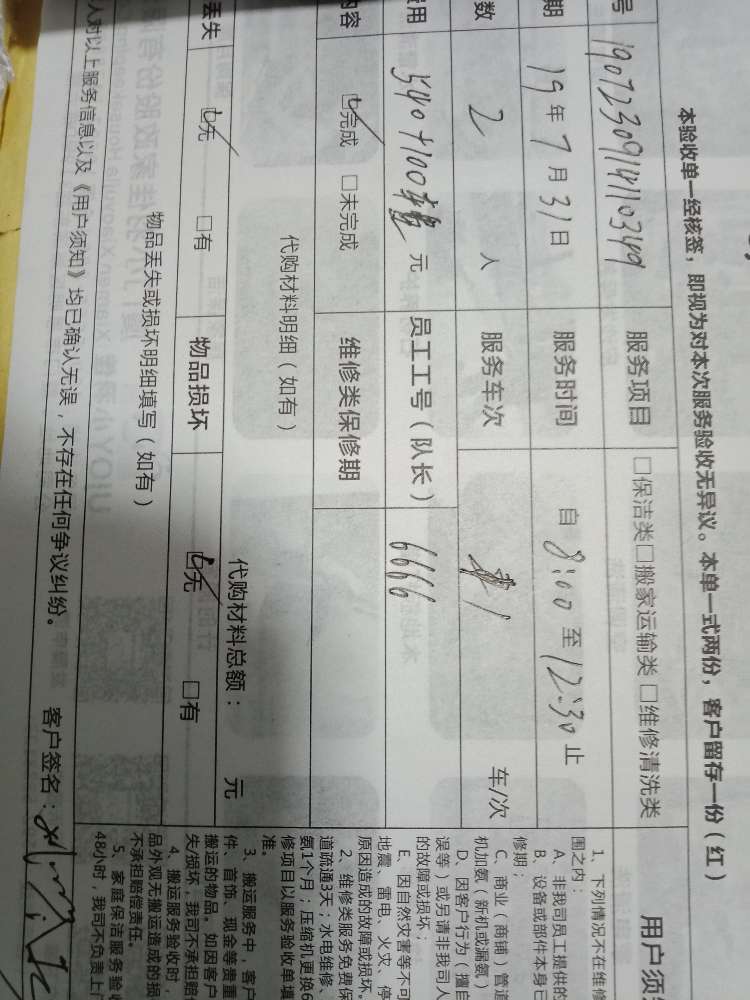 本验收单一经核签，即视为对本次服务验收无异议。本单一式两份，客户留存一份（红）
号 190723091411103449 服务项目 □保洁类□搬家运输类 □维修清洗类
期 19年7月31日 服务时间 自 8:00 至 12:30 止
数 2 人 服务车次 1 车/次
费用 540+100 元 员工工号（队长） 6666
内容 完成 □未完成 维修类保修期
代购材料明细（如有） 代购材料总额： 元
丢失 无 □有 物品损坏 无 □有
物品丢失或损坏明细填写（如有）
人对以上服务信息以及《用户须知》均已确认无误，不存在任何争议纠纷。 客户签名：
用户须
1、下列情况不在维修
围之内：
A、非我司员工提供的
B、设备或部件本身已
修期；
C、商业（商铺）管道
机加氨（新机或漏氨）
D、因客户行为（擅自
误等）或另请非我司人
的故障或损坏；
E、因自然灾害等不可
地震、雷电、火灾、停
原因造成的故障或损坏。
2、维修类服务免费保
道疏通3天；水电维修、
氨1个月；压缩机更换6
修项目以服务验收单填
准。
3、搬运服务中，客户
件、首饰、现金等贵重
搬运的物品。如因客户
失/损坏，我司不承担赔
4、搬运服务验收时，
品外观无搬运造成的损
不承担赔偿责任。
5、家庭保洁服务验收
48小时，我司不负责上门